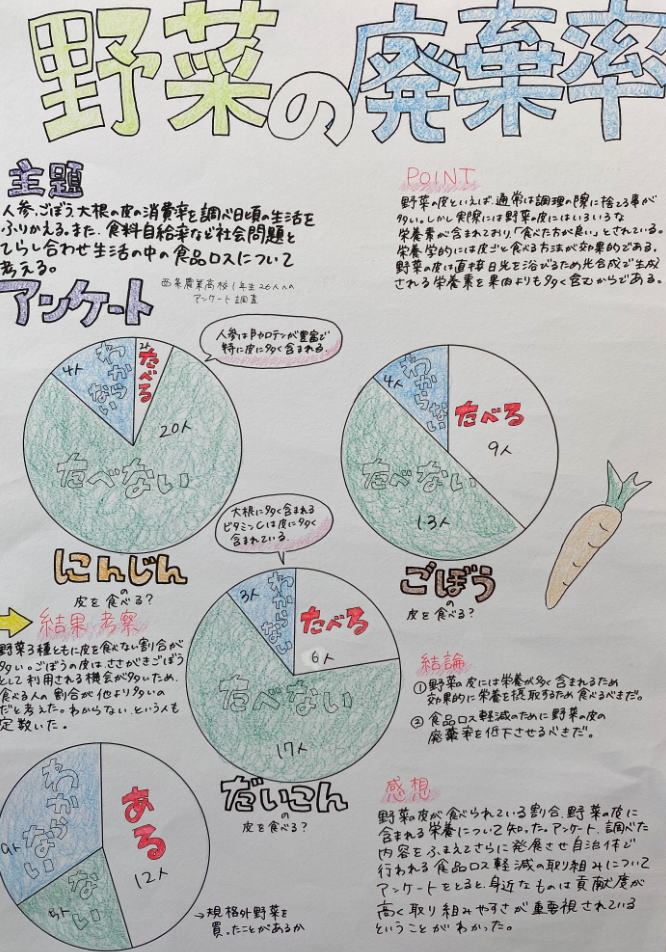 野菜の廃棄率
主題
人参、ごぼう大根の皮の消費率を調べ日頃の生活を
ふりかえる。また、食料自給率など社会問題と
てらし合わせ生活の中の食品ロスについて
考える。
POINT
野菜の皮といえば、通常は調理の際に捨てる事が
多い。しかし実際には野菜の皮にはいろいろな
栄養素が含まれており、「食べた方が良い」とされている。
栄養学的には皮ごと食べる方法が効果的である。
野菜の皮は直接日光を浴びるため光合成で生成
される栄養素を果肉よりも多く含むからである。
アンケート
西条農業高校1年生26人への
アンケート調査
人参はβカロテンが豊富で
特に皮に多く含まれる。
4人
わからない
2人
たべる
20人
たべない
にんじん
の
皮を食べる?
4人
わからない
たべる
9人
たべない
13人
ごぼう
の
皮を食べる?
大根に多く含まれる
ビタミンCは皮に多く
含まれている。
3人
わからない
たべる
6人
たべない
17人
だいこん
の
皮を食べる?
結果 考察
野菜3種ともに皮を食べない割合が
多い。ごぼうの皮は、ささがきごぼう
として利用される機会が多いため
食べる人の割合が他より多いの
だと考えた。わからないという人も
定数いた。
結論
①野菜の皮には栄養が多く含まれるため
効果的に栄養を摂取するため食べるべきだ。
②食品ロス軽減のために野菜の皮の
廃棄率を低下させるべきだ。
わからない
9人
ある
12人
ない
→規格外野菜を
買ったことがあるか
感想
野菜の皮が食べられている割合、野菜の皮に
含まれる栄養について知った。アンケート、調べた
内容をふまえてさらに発展させ自治体で
行われる食品ロス軽減の取り組みについて
アンケートをとると、身近なものは貢献度が
高く取り組みやすさが重要視されている
ということがわかった。